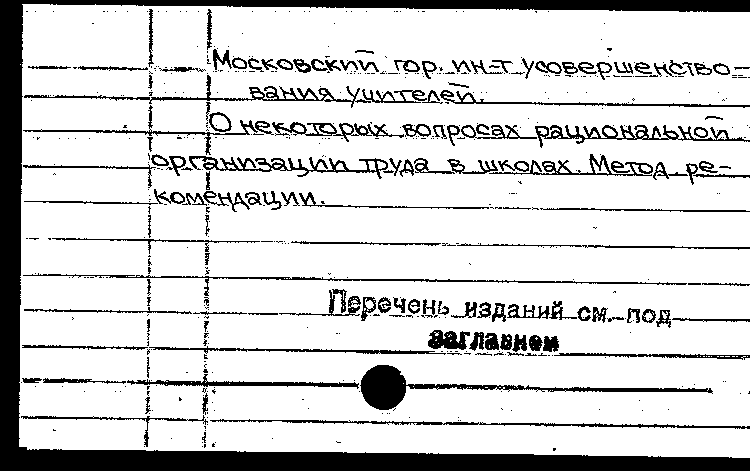 Московский гор. ин-т усовершенство-
вания учителей.
О некоторых вопросах рациональной
организации труда в школах. Метод. ре-
комендации.
Перечень изданий см. под
заглавием